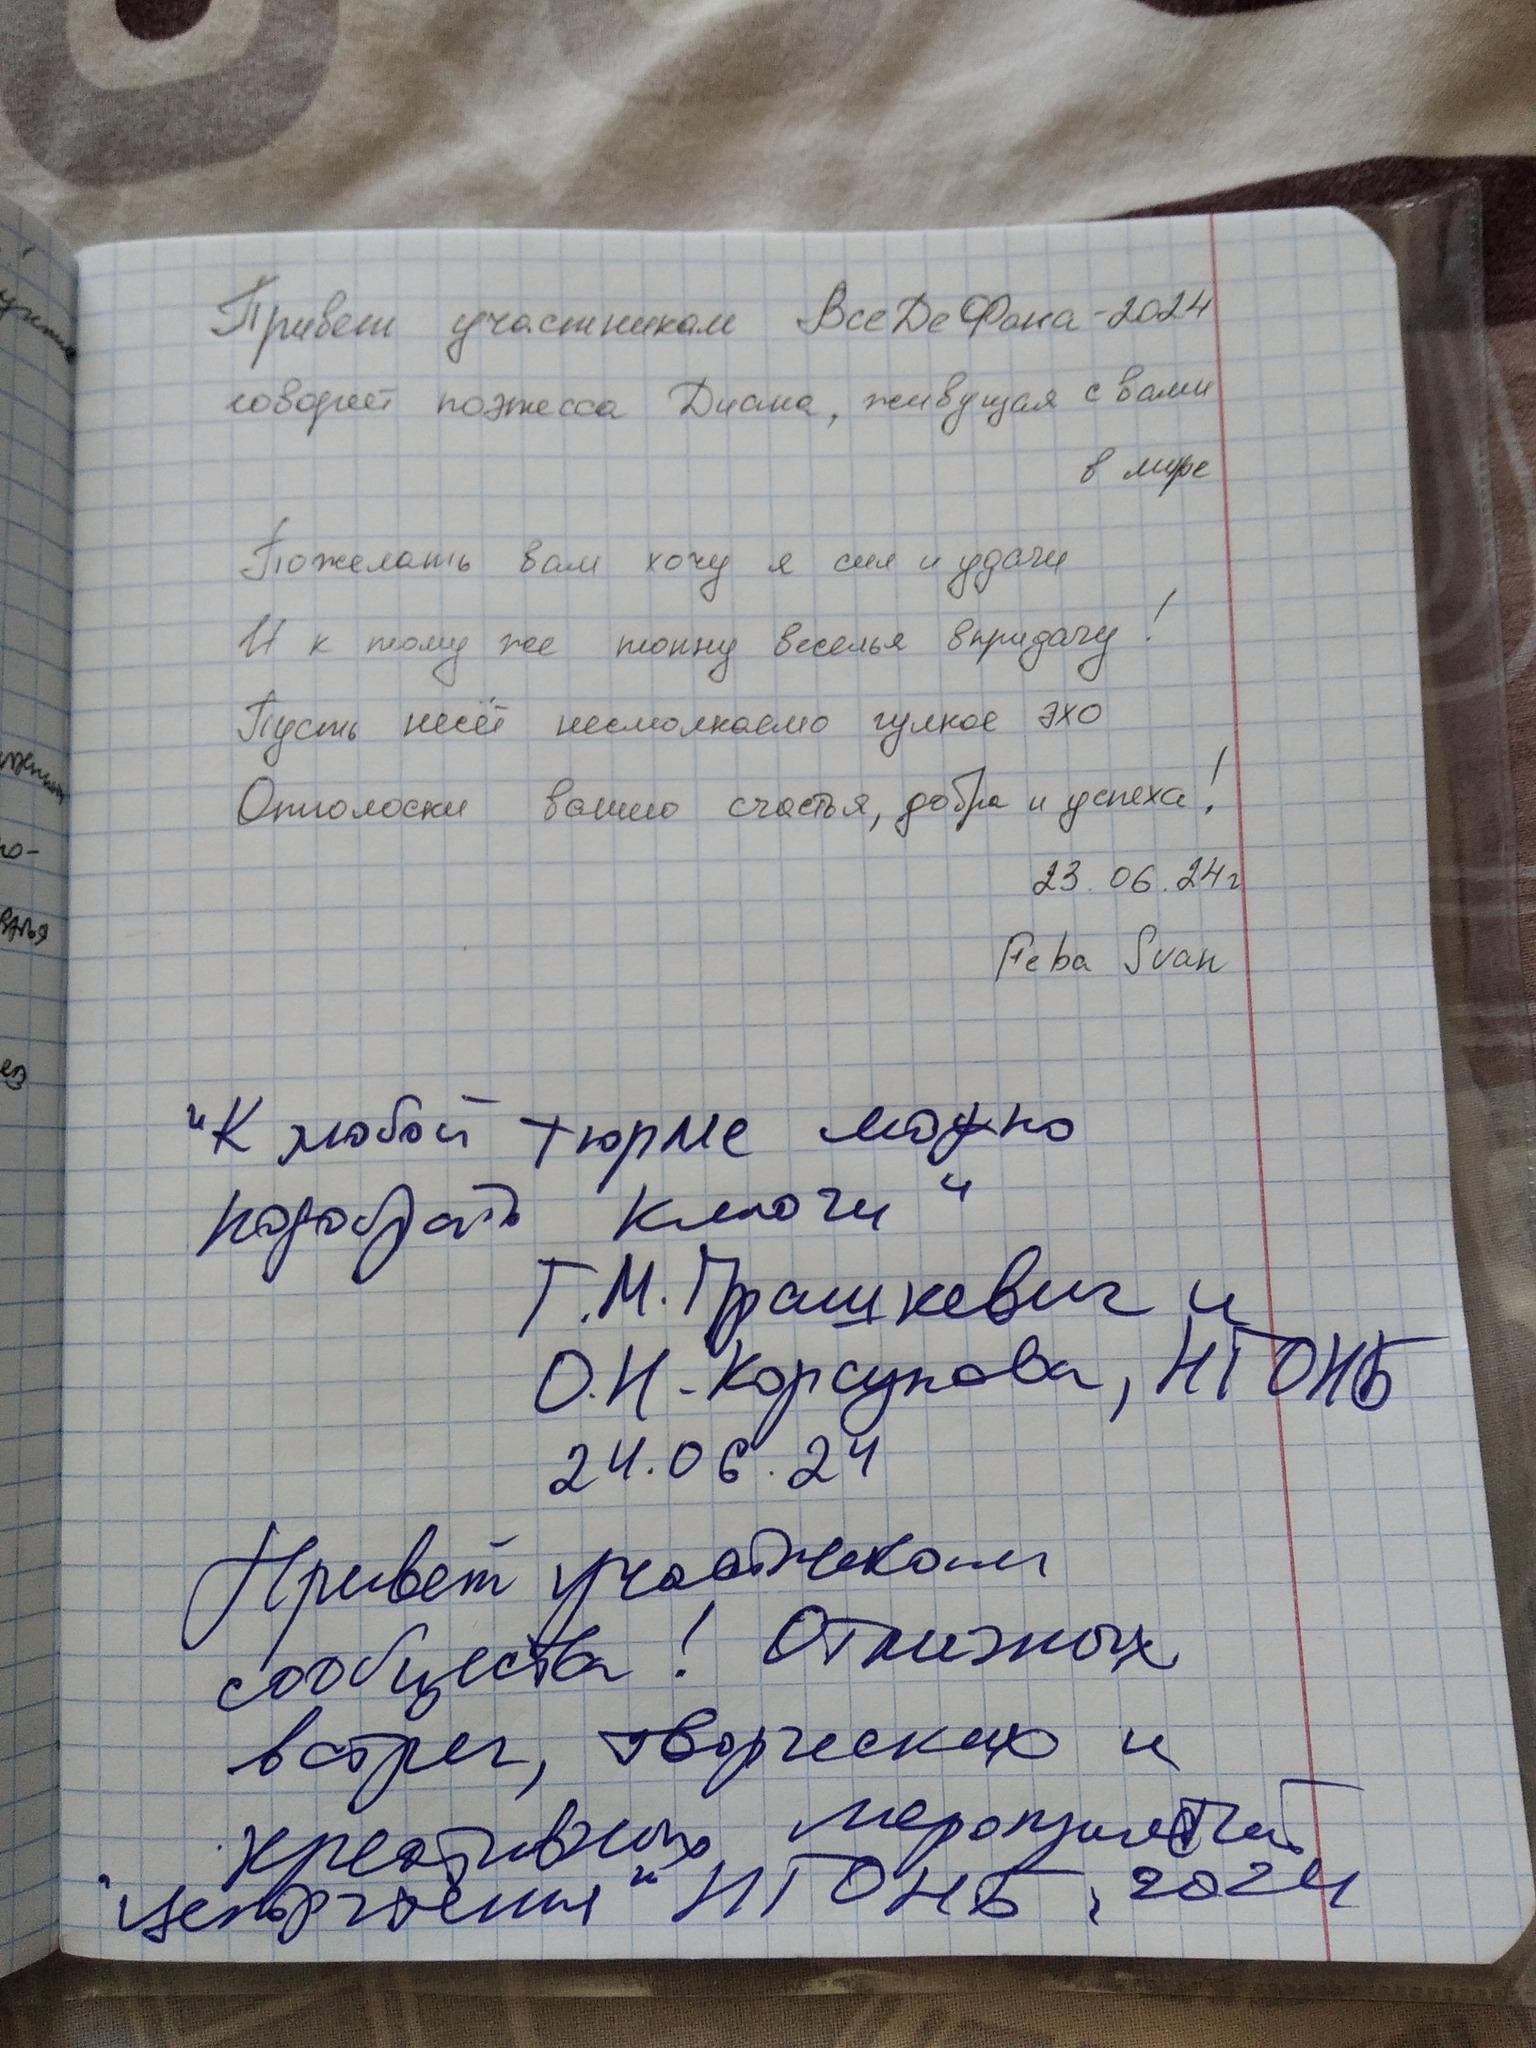 Привет участникам ВсеДеФона-2024
говорит поэтесса Диана, живущая с вами
в мире
Пожелать вам хочу я сил и удачи
И к тому же тонну веселья впридачу!
Пусть несёт несмолкаемо гулкое эхо
Отголоски вашего счастья, добра и успеха!
23.06.24г
Feba Svan
"К любой тюрьме можно
подобрать ключи"
Г.М. Прашкевич и
О.Н. Корсунова, НГОНБ
24.06.24
Привет участникам
сообщества! Отличных
встреч, творческих и
креативных мероприятий
НГОНБ, 2024